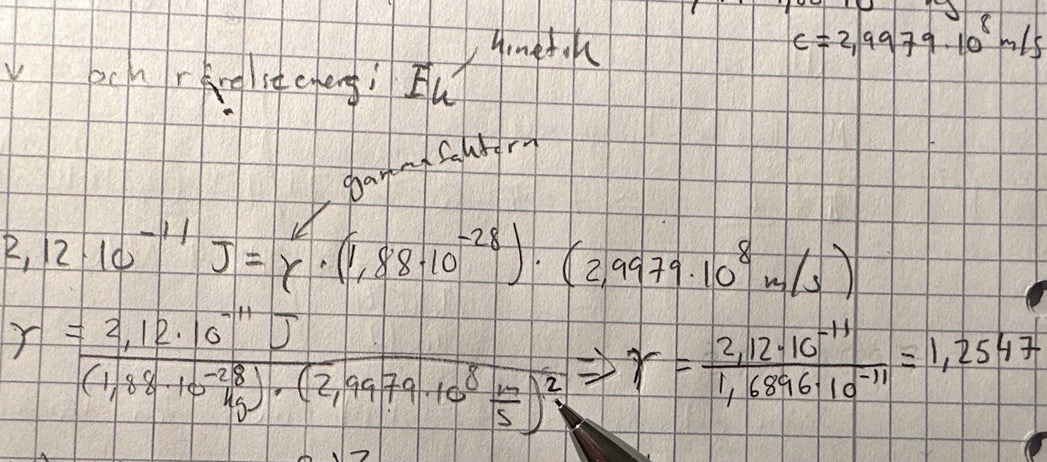 c = 2,9979·10⁸ m/s
kinetisk
v och rörelseenergi Ek
gammafaktorn
2,12·10⁻¹¹ J = γ · (1,88·10⁻²⁸) · (2,9979·10⁸ m/s)
γ = 2,12·10⁻¹¹ J / (1,88·10⁻²⁸ kg) · (2,9979·10⁸ m/s)² ⇒ γ = 2,12·10⁻¹¹ / 1,6896·10⁻¹¹ = 1,2547